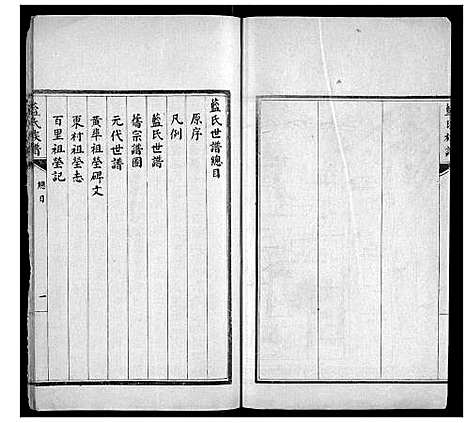 藍氏世譜總目
原序
凡例
藍氏世譜
舊宗譜圖
元代世譜
黃阜祖塋碑文
東村祖塋志
百里祖塋記
藍氏族譜
總目
一